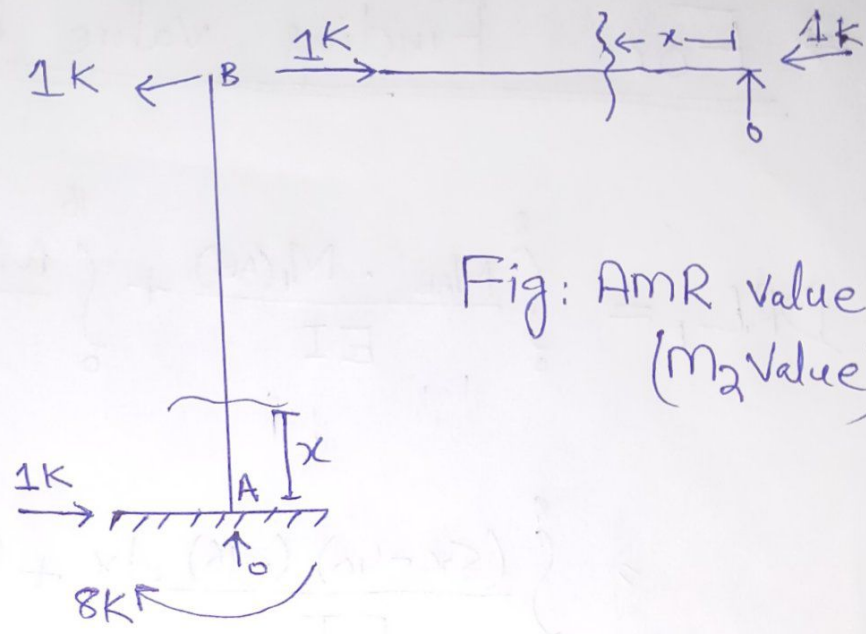 1K B 1K x 1K
0
Fig: AMR value
(M₂ Value
x
1K A
0
8K